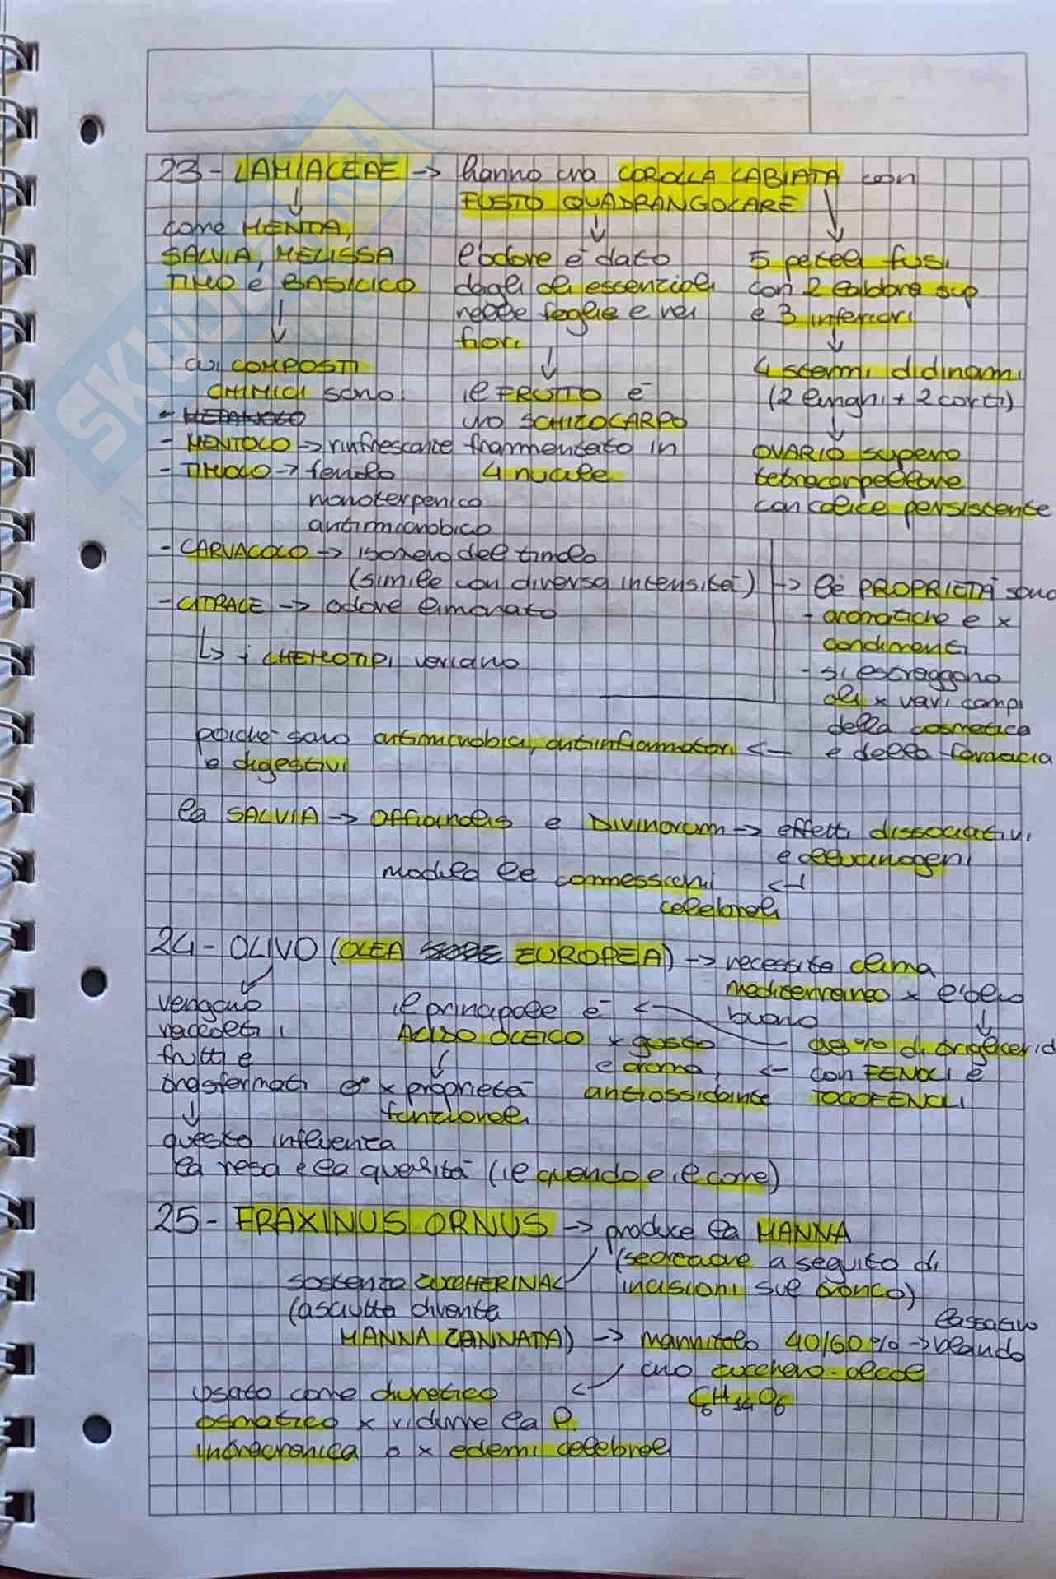 23 - LAMIACEAE → hanno una COROLLA LABIATA con
FUSTO QUADRANGOLARE
come MENTA,
SALVIA, MELISSA
TIMO e BASILICO
l'odore è dato
dagli oli essenziali
nelle foglie e nei
fiori
5 petali fusi
con 2 labbra sup
e 3 inferiori
i cui COMPOSTI
CHIMICI sono:
il FRUTTO è
uno SCHIZOCARPO
frammentato in
4 nucule
4 stami didinami
(2 lunghi + 2 corti)
OVARIO supero
tetracarpellare
con calice persistente
- MENTOLO → rinfrescante
- TIMOLO → fenolo
monoterpenico
antimicrobico
- CARVACOLO → isomero del timolo
(simile con diversa intensità)
- CITRALE → odore limonato
↳ i CHEMOTIPI variano
→ le PROPRIETÀ sono
- aromatiche e x
condimenti
- si estraggono
oli x vari campi
della cosmetica
e della farmacia
poiché sono antimicrobici, antinfiammatori ←
e digestivi
la SALVIA → officinalis e Divinorum → effetti dissociativi
e allucinogeni
modula le connessioni ←
celebrali
24 - OLIVO (OLEA EUROPEA) → necessita clima
mediterraneo x essere
buono
vengono
raccolti i
frutti e
trasformati
il principale è ←
ACIDO OLEICO x gusto
e aroma,
x proprietà
funzionali
98% di trigliceridi
← con FENOLI e
antiossidante TOCOFENOLI
questo influenza
la resa e la qualità (il quando e il come)
25 - FRAXINUS ORNUS → produce la MANNA
(secrezione a seguito di
incisioni sul tronco)
sostanza ZUCCHERINA
(asciutta diventa
MANNA CANNATA) → mannitolo 40/60% → blando
lassativo
uno zucchero-alcol
C6H14O6
usato come diuretico ←
osmotico x ridurre la P.
intracranica o x edemi celebrali